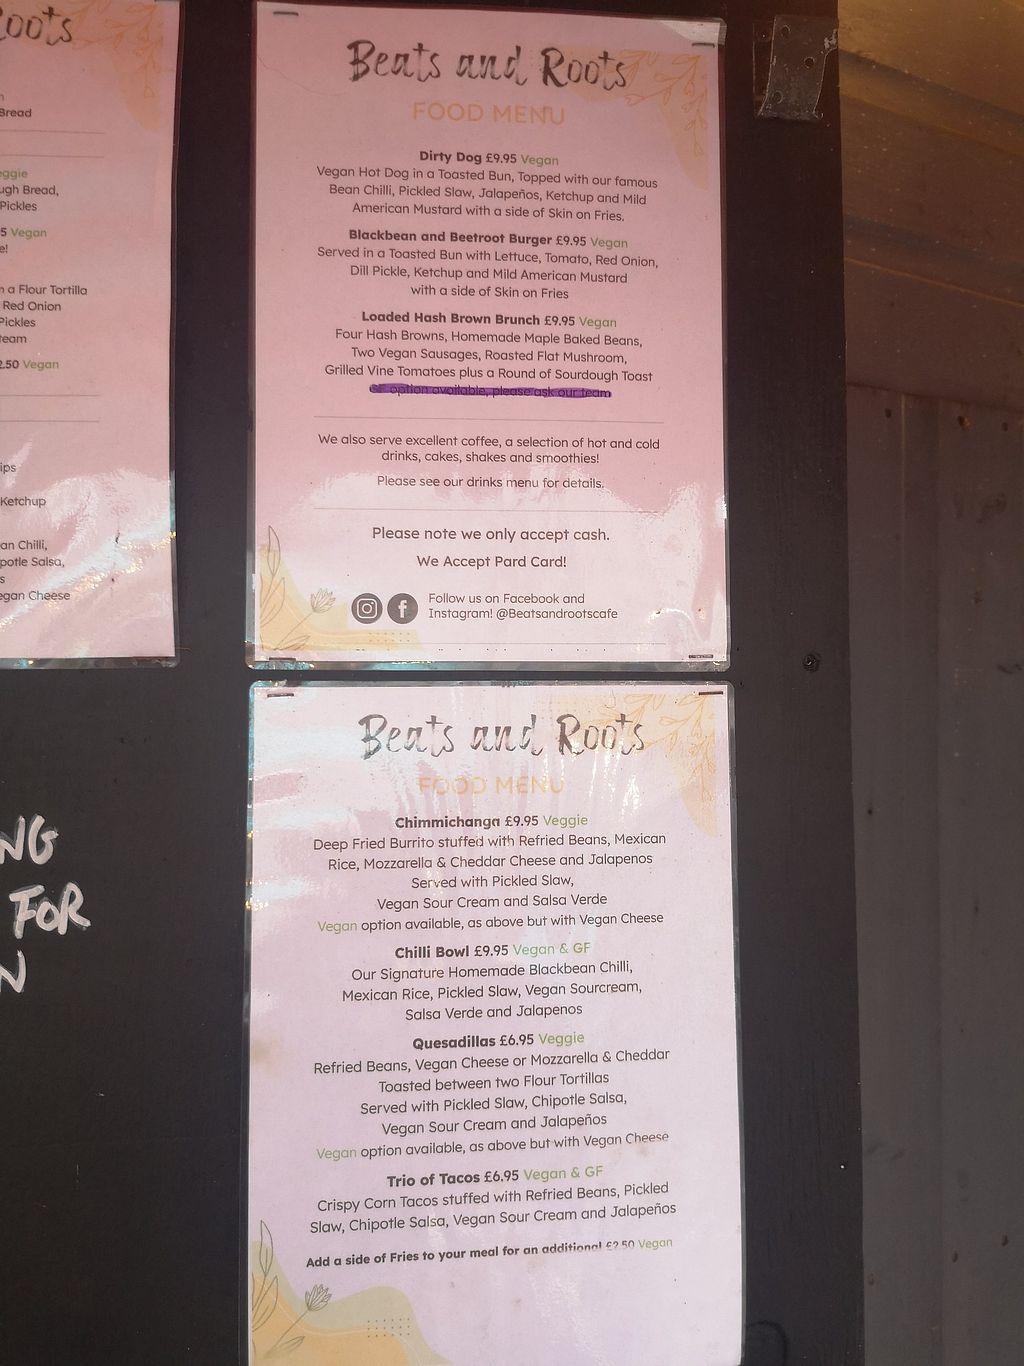 Roots
Bread
ugh Bread,
Pickles
5 Vegan
e!
n a Flour Tortilla
Red Onion
Pickles
team
2.50 Vegan
ips
Ketchup
an Chilli,
potle Salsa,
s
egan Cheese
NG
FOR
N
Beats and Roots
FOOD MENU
Dirty Dog £9.95 Vegan
Vegan Hot Dog in a Toasted Bun, Topped with our famous
Bean Chilli, Pickled Slaw, Jalapeños, Ketchup and Mild
American Mustard with a side of Skin on Fries.
Blackbean and Beetroot Burger £9.95 Vegan
Served in a Toasted Bun with Lettuce, Tomato, Red Onion,
Dill Pickle, Ketchup and Mild American Mustard
with a side of Skin on Fries
Loaded Hash Brown Brunch £9.95 Vegan
Four Hash Browns, Homemade Maple Baked Beans,
Two Vegan Sausages, Roasted Flat Mushroom,
Grilled Vine Tomatoes plus a Round of Sourdough Toast
GF option available, please ask our team
We also serve excellent coffee, a selection of hot and cold
drinks, cakes, shakes and smoothies!
Please see our drinks menu for details.
Please note we only accept cash.
We Accept Pard Card!
Follow us on Facebook and
Instagram! @Beatsandrootscafe
Beats and Roots
FOOD MENU
Chimmichanga £9.95 Veggie
Deep Fried Burrito stuffed with Refried Beans, Mexican
Rice, Mozzarella & Cheddar Cheese and Jalapenos
Served with Pickled Slaw,
Vegan Sour Cream and Salsa Verde
Vegan option available, as above but with Vegan Cheese
Chilli Bowl £9.95 Vegan & GF
Our Signature Homemade Blackbean Chilli,
Mexican Rice, Pickled Slaw, Vegan Sourcream,
Salsa Verde and Jalapenos
Quesadillas £6.95 Veggie
Refried Beans, Vegan Cheese or Mozzarella & Cheddar
Toasted between two Flour Tortillas
Served with Pickled Slaw, Chipotle Salsa,
Vegan Sour Cream and Jalapeños
Vegan option available, as above but with Vegan Cheese
Trio of Tacos £6.95 Vegan & GF
Crispy Corn Tacos stuffed with Refried Beans, Pickled
Slaw, Chipotle Salsa, Vegan Sour Cream and Jalapeños
Add a side of Fries to your meal for an additional £2.50 Vegan